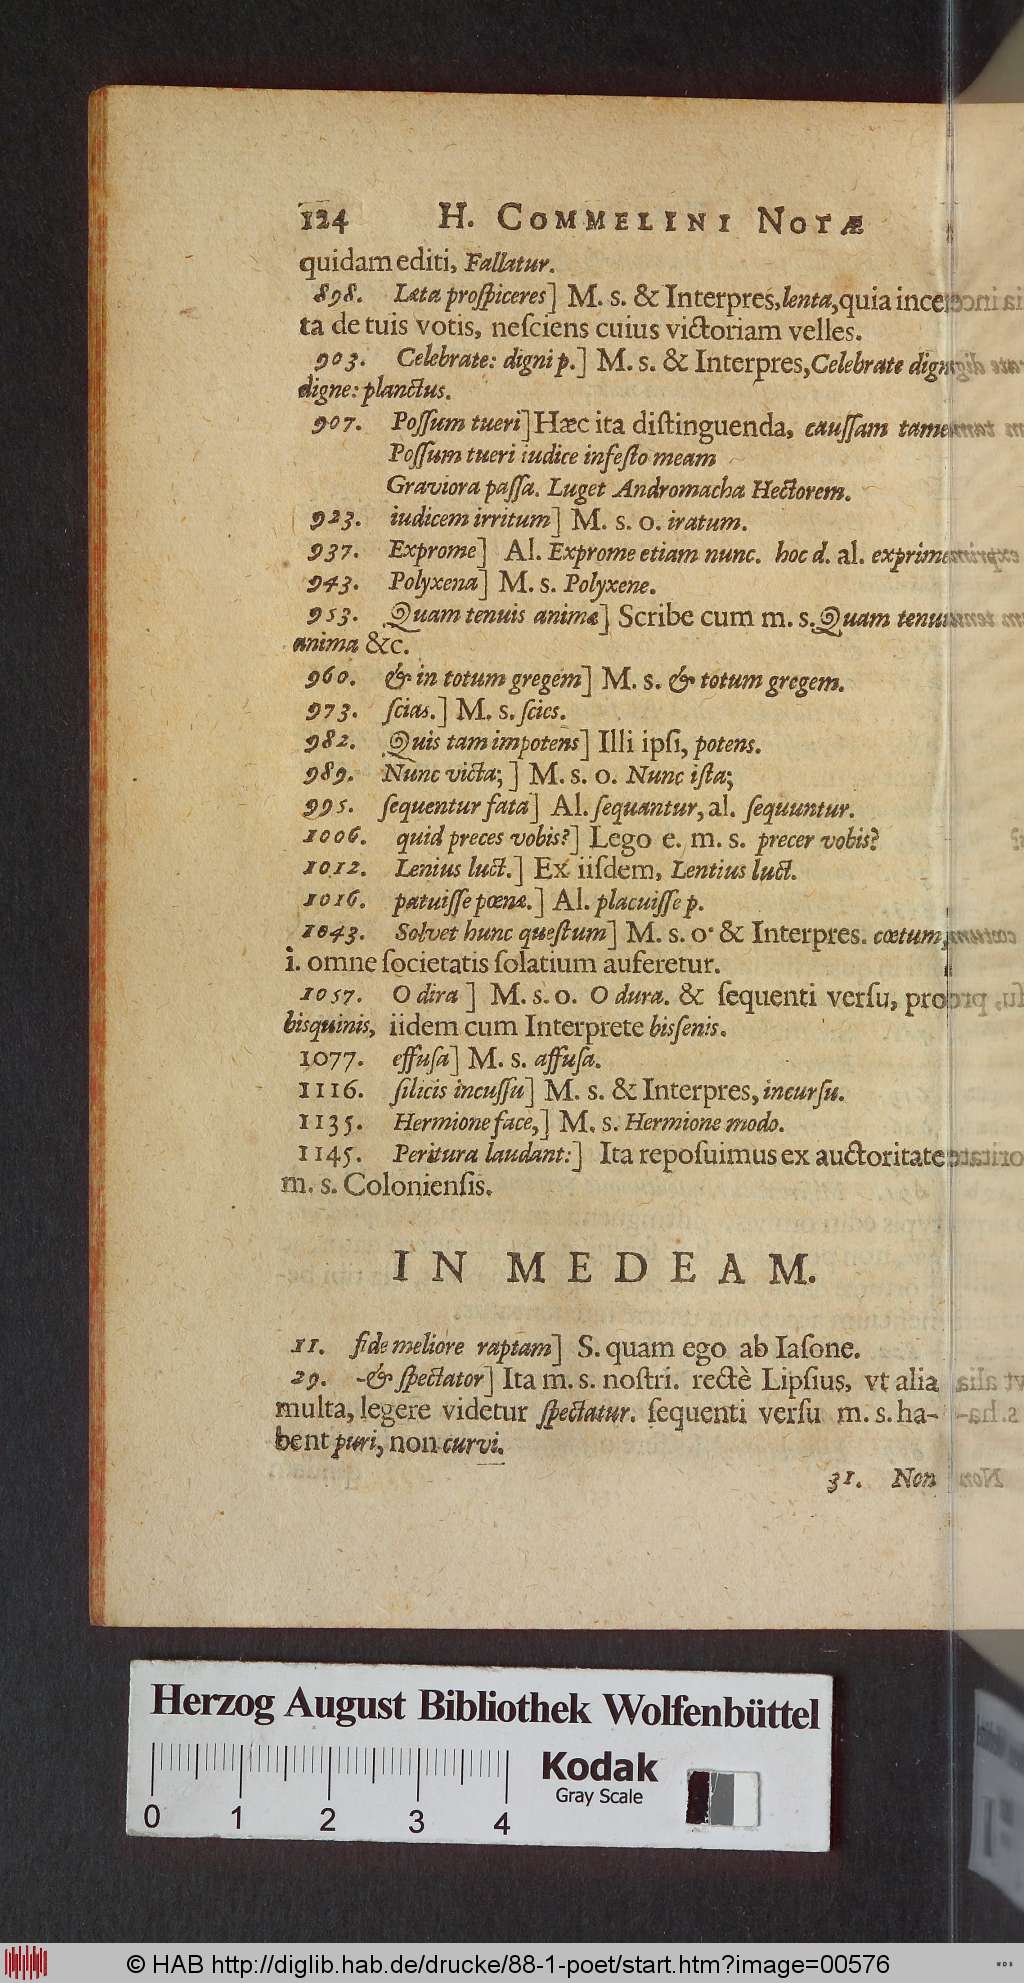 124 H. COMMELINI NOTÆ
quidam editi, Fallatur.
898. Læta proſpiceres] M. s. & Interpres, lenta, quia incer
ta de tuis votis, neſciens cuius victoriam velles.
903. Celebrate: digni p.] M. s. & Interpres, Celebrate digni
digne: planctus.
907. Poſſum tueri] Hæc ita diſtinguenda, cauſſam tamen
Poſſum tueri iudice infeſto meam
Graviora paſſa. Luget Andromacha Hectorem.
923. iudicem irritum] M. s. o. iratum.
937. Exprome] Al. Exprome etiam nunc. hoc d. al. exprime
943. Polyxena] M. s. Polyxene.
953. Quam tenuis animæ] Scribe cum m. s. Quam tenuis
anima &c.
960. & in totum gregem] M. s. & totum gregem.
973. ſcias.] M. s. ſcies.
982. Quis tam impotens] Illi ipſi, potens.
989. Nunc victa;] M. s. o. Nunc iſta;
995. ſequentur fata] Al. ſequantur, al. ſequuntur.
1006. quid preces vobis?] Lego e. m. s. precer vobis?
1012. Lenius luct.] Ex iiſdem, Lentius luct.
1016. patuiſſe pœnæ.] Al. placuiſſe p.
1043. Solvet hunc queſtum] M. s. o. & Interpres. cœtum,
i. omne ſocietatis ſolatium auferetur.
1057. O dira] M. s. o. O dura. & ſequenti verſu, pro
bisquinis, iidem cum Interprete bisſenis.
1077. effuſa] M. s. affuſa.
1116. ſilicis incuſſu] M. s. & Interpres, incurſu.
1135. Hermione face,] M. s. Hermione modo.
1145. Peritura laudant:] Ita repoſuimus ex auctoritate
m. s. Colonienſis.
IN MEDEAM.
11. fide meliore raptam] S. quam ego ab Iaſone.
29. -& ſpectator] Ita m. s. noſtri. rectè Lipſius, vt alia
multa, legere videtur ſpectatur. ſequenti verſu m. s. ha-
bent puri, non curvi.
31. Non
Herzog August Bibliothek Wolfenbüttel
Kodak
Gray Scale
0 1 2 3 4
© HAB http://diglib.hab.de/drucke/88-1-poet/start.htm?image=00576